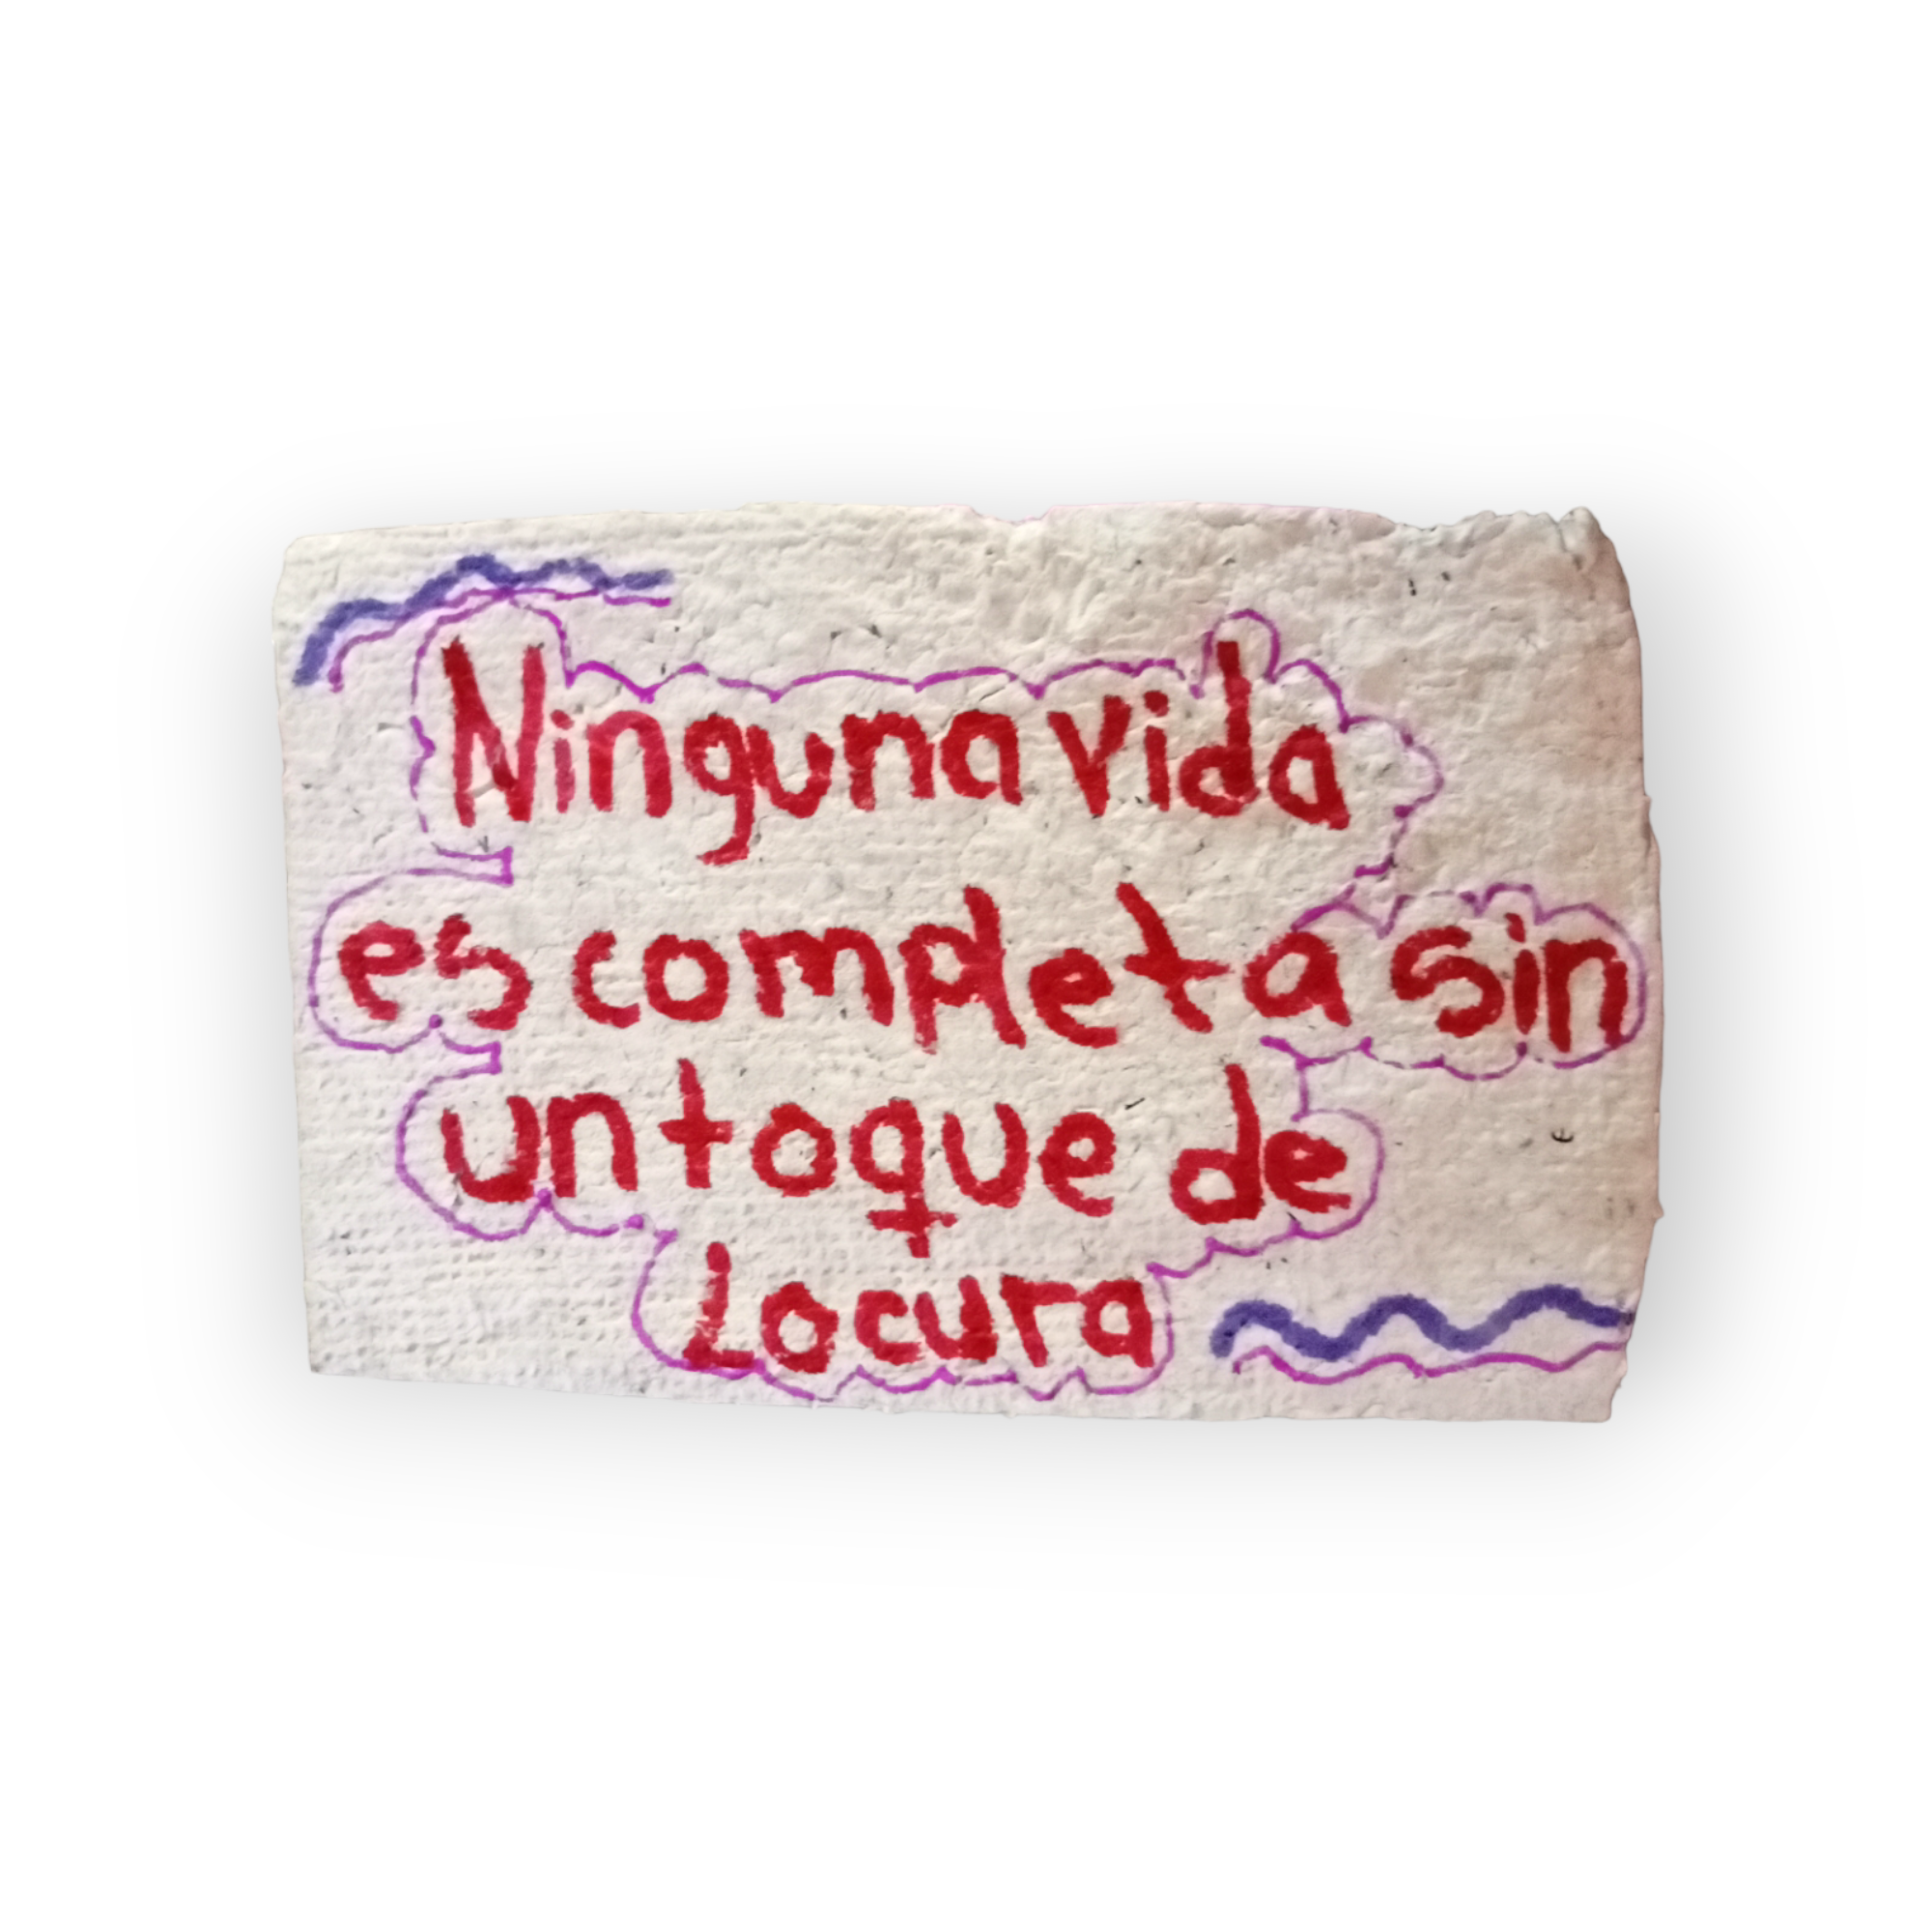 Ninguna vida
es completa sin
un toque de
Locura